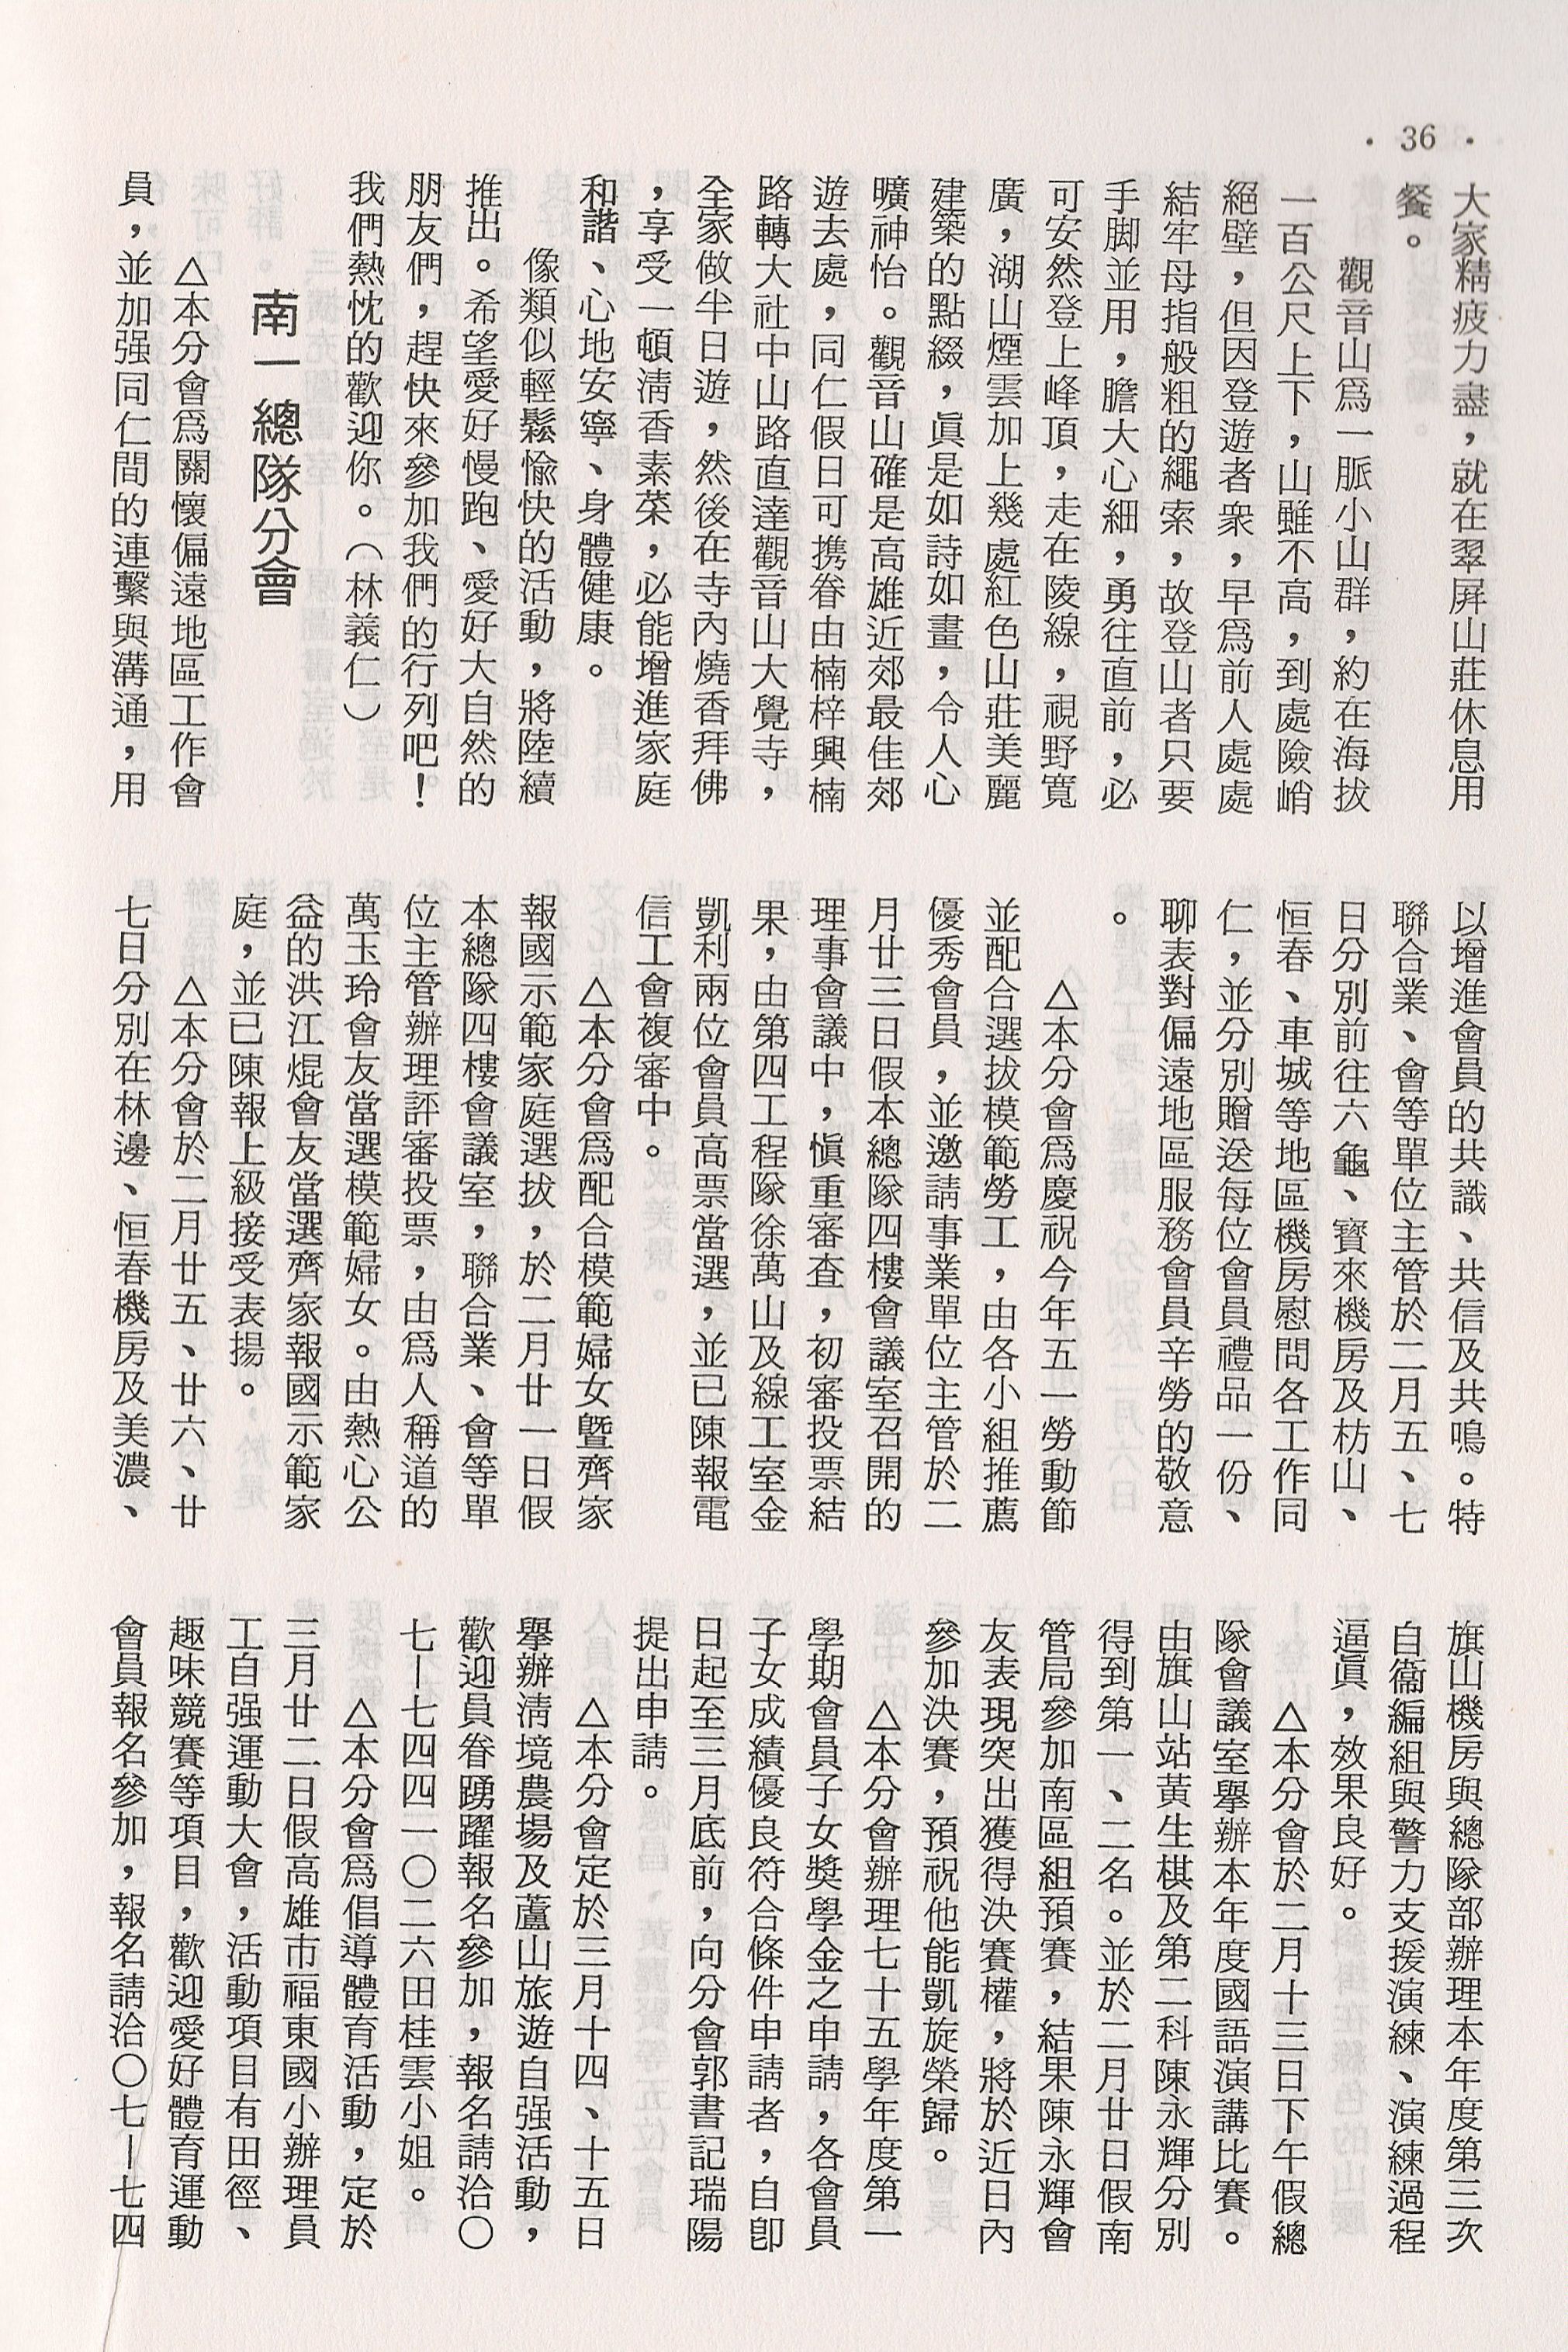 · 36 ·
大家精疲力盡，就在翠屏山莊休息用
餐。
觀音山爲一脈小山群，約在海拔
一百公尺上下，山雖不高，到處險峭
絕壁，但因登遊者衆，早爲前人處處
結牢母指般粗的繩索，故登山者只要
手脚並用，膽大心細，勇往直前，必
可安然登上峰頂，走在陵線，視野寬
廣，湖山煙雲加上幾處紅色山莊美麗
建築的點綴，眞是如詩如畫，令人心
曠神怡。觀音山確是高雄近郊最佳郊
遊去處，同仁假日可携眷由楠梓興楠
路轉大社中山路直達觀音山大覺寺，
全家做半日遊，然後在寺內燒香拜佛
，享受一頓淸香素菜，必能增進家庭
和諧、心地安寧、身體健康。
像類似輕鬆愉快的活動，將陸續
推出。希望愛好慢跑、愛好大自然的
朋友們，趕快來參加我們的行列吧！
我們熱忱的歡迎你。（林義仁）
南一總隊分會
△本分會爲關懷偏遠地區工作會
員，並加强同仁間的連繫與溝通，用
以增進會員的共識、共信及共鳴。特
聯合業、會等單位主管於二月五、七
日分別前往六龜、寶來機房及枋山、
恒春、車城等地區機房慰問各工作同
仁，並分別贈送每位會員禮品一份、
聊表對偏遠地區服務會員辛勞的敬意
。
△本分會爲慶祝今年五一勞動節
並配合選拔模範勞工，由各小組推薦
優秀會員，並邀請事業單位主管於二
月廿三日假本總隊四樓會議室召開的
理事會議中，愼重審査，初審投票結
果，由第四工程隊徐萬山及線工室金
凱利兩位會員高票當選，並已陳報電
信工會複審中。
△本分會爲配合模範婦女曁齊家
報國示範家庭選拔，於二月廿一日假
本總隊四樓會議室，聯合業、會等單
位主管辦理評審投票，由爲人稱道的
萬玉玲會友當選模範婦女。由熱心公
益的洪江焜會友當選齊家報國示範家
庭，並已陳報上級接受表揚。
△本分會於二月廿五、廿六、廿
七日分別在林邊、恒春機房及美濃、
旗山機房與總隊部辦理本年度第三次
自衞編組與警力支援演練、演練過程
逼眞，效果良好。
△本分會於二月十三日下午假總
隊會議室擧辦本年度國語演講比賽。
由旗山站黃生棋及第二科陳永輝分別
得到第一、二名。並於二月廿日假南
管局參加南區組預賽，結果陳永輝會
友表現突出獲得決賽權，將於近日內
參加決賽，預祝他能凱旋榮歸。
△本分會辦理七十五學年度第一
學期會員子女奬學金之申請，各會員
子女成績優良符合條件申請者，自卽
日起至三月底前，向分會郭書記瑞陽
提出申請。
△本分會定於三月十四、十五日
擧辦淸境農場及蘆山旅遊自强活動，
歡迎員眷踴躍報名參加，報名請洽〇
七－七四四一〇二六田桂雲小姐。
△本分會爲倡導體育活動，定於
三月廿二日假高雄市福東國小辦理員
工自强運動大會，活動項目有田徑、
趣味競賽等項目，歡迎愛好體育運動
會員報名參加，報名請洽〇七－七四